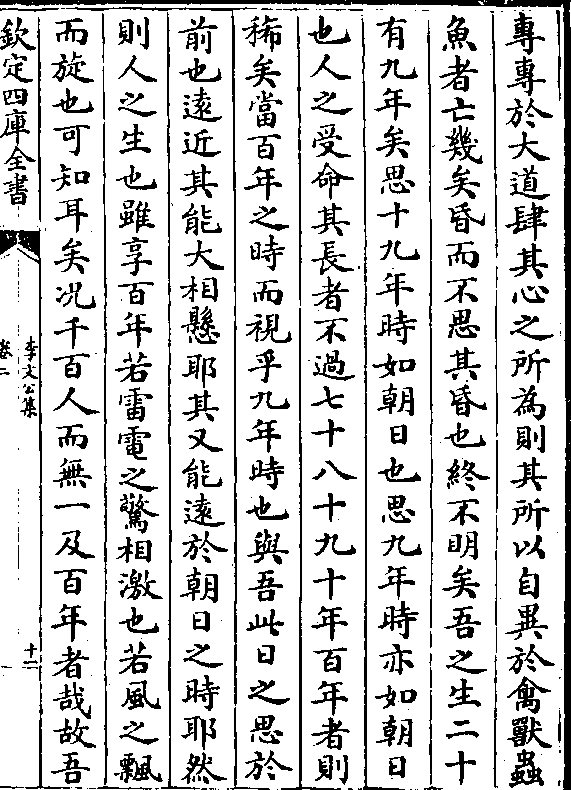 專專於大道肆其心之所為則其所以自異於禽獸蟲
魚者亡幾矣昏而不思其昏也終不明矣吾之生二十
有九年矣思十九年時如朝日也思九年時亦如朝日
也人之受命其長者不過七十八十九十年百年者則
稀矣當百年之時而視乎九年時也與吾此日之思於
前也遠近其能大相懸耶其又能遠於朝日之時耶然
則人之生也雖享百年若雷電之驚相激也若風之飄
而旋也可知耳矣况千百人而無一及百年者哉故吾
欽定四庫全書
李文公集
卷二
十二